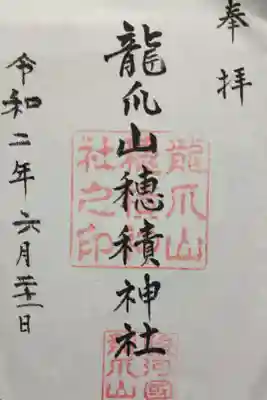 奉拝
龍爪山穂積神社
令和二年六月二十一日
龍爪山穂積神社之印
駿河國龍爪山